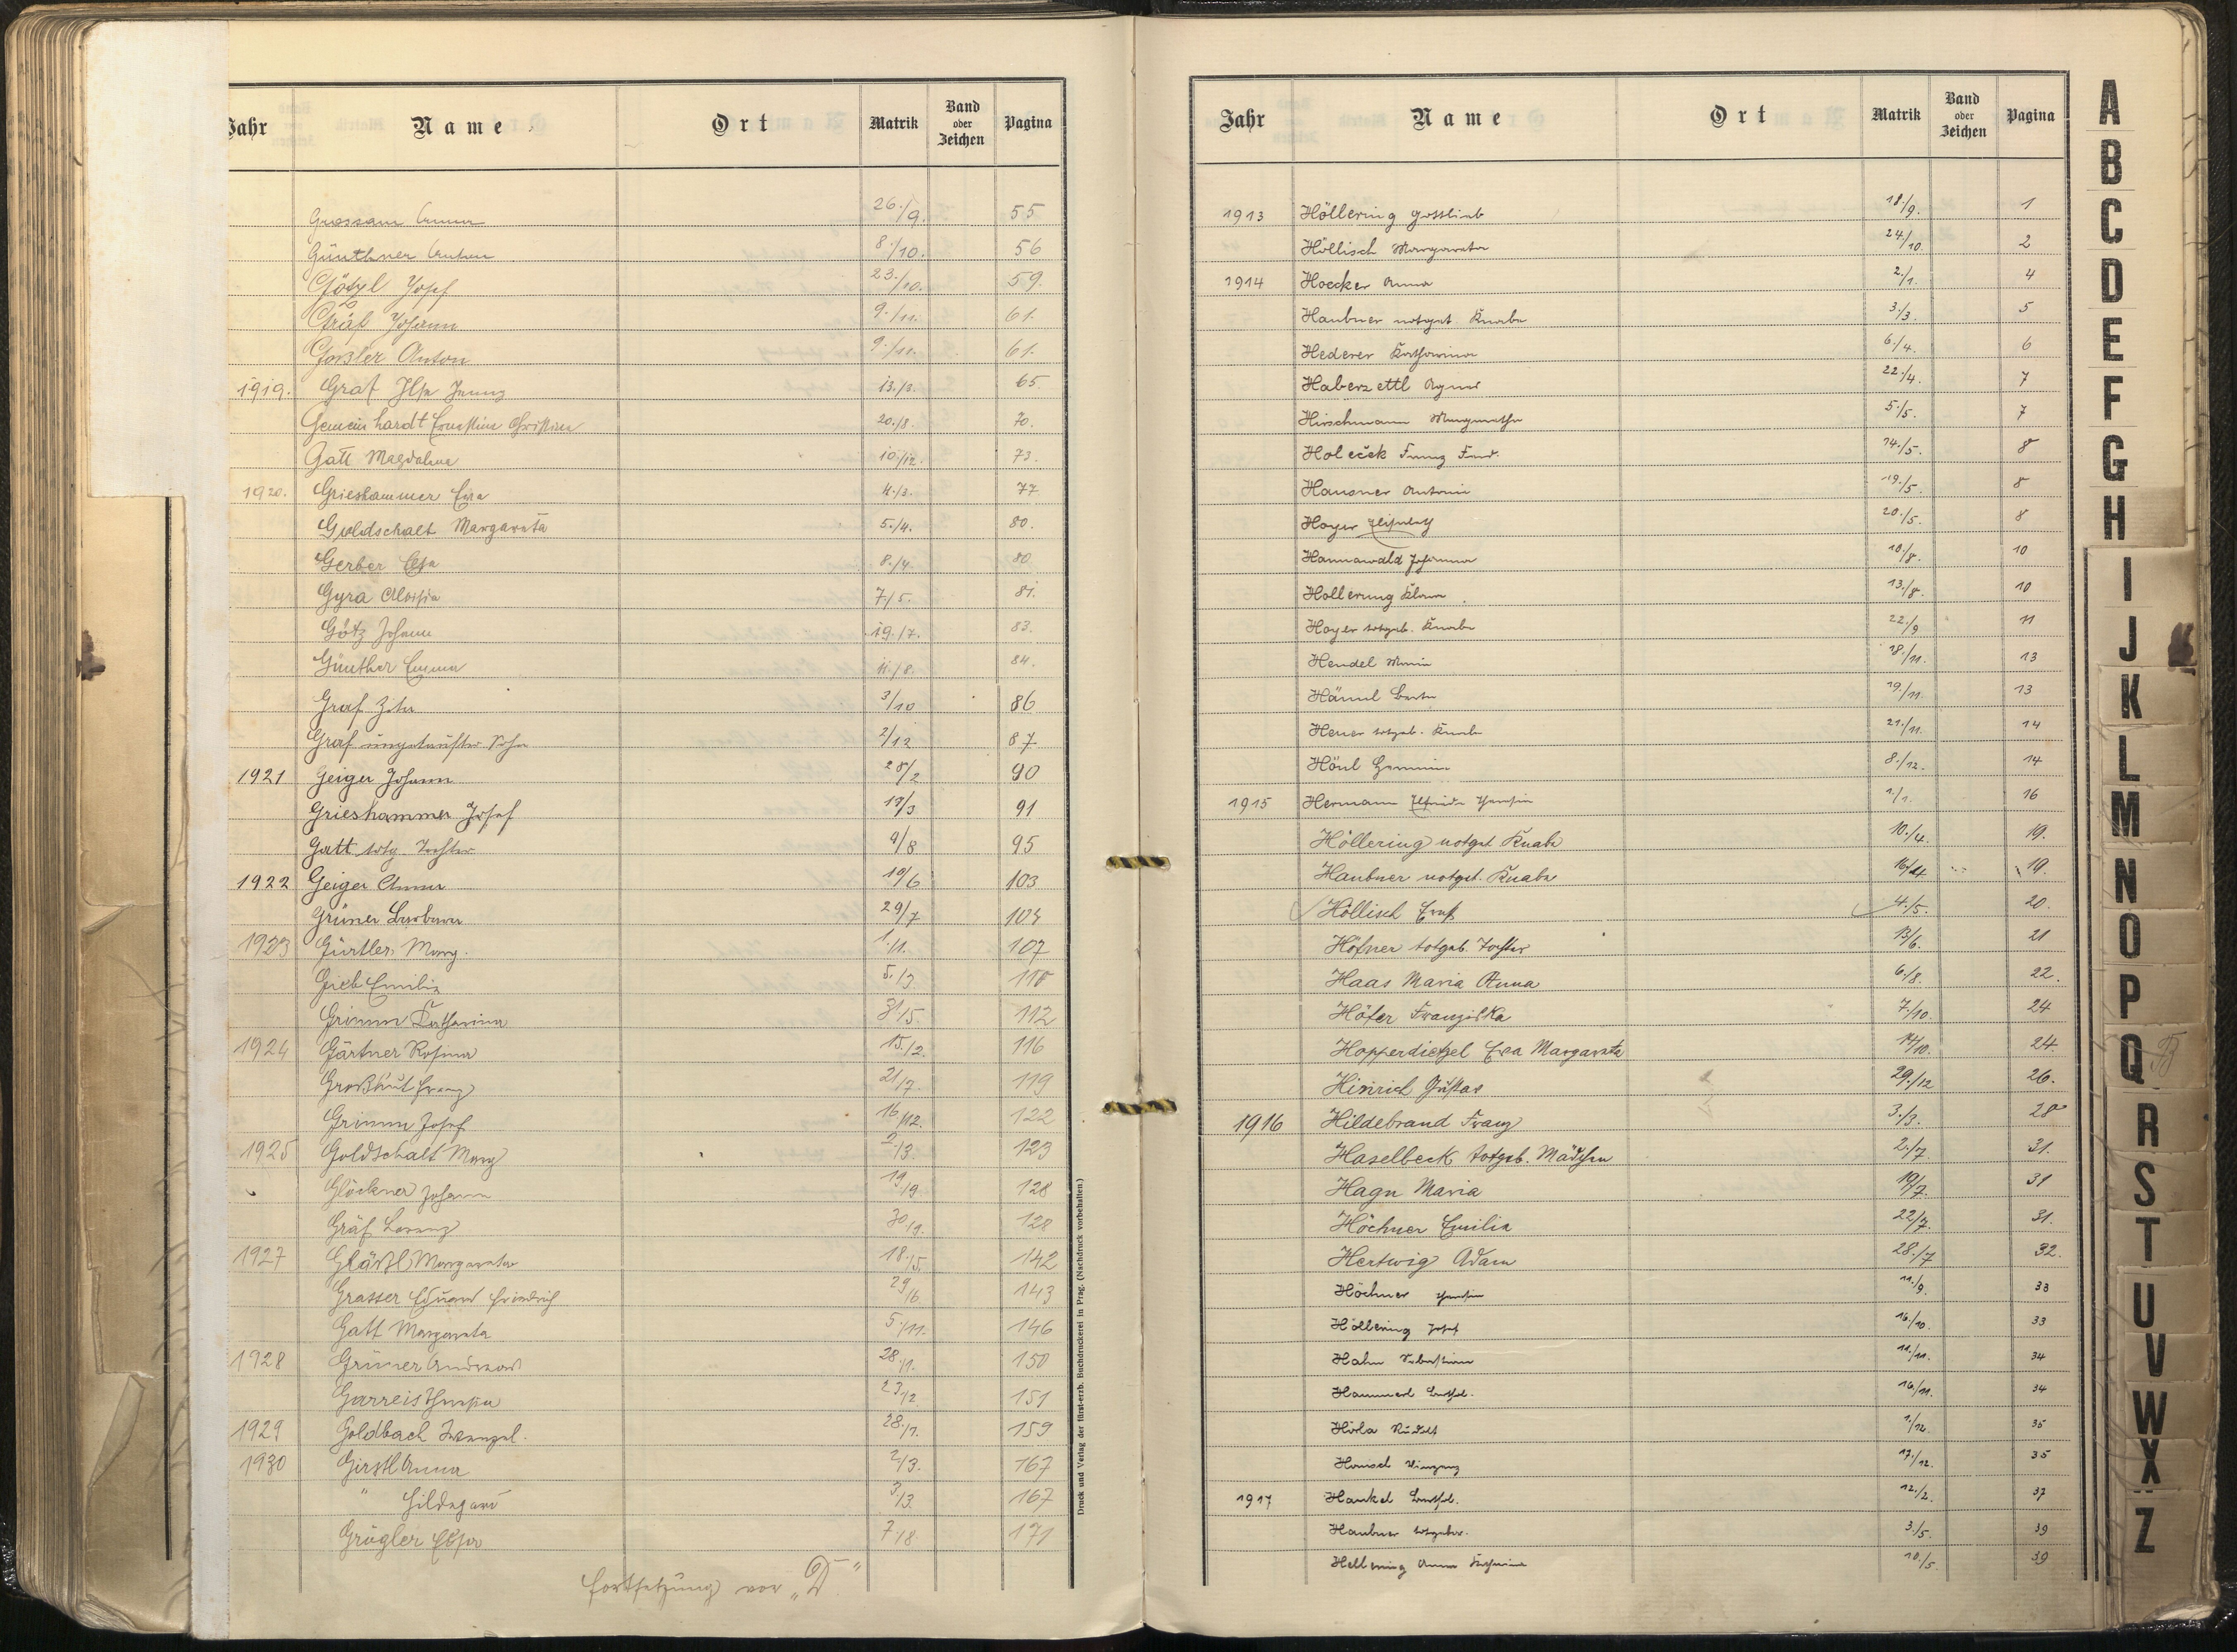 Jahr Name Ort Matrik Band oder Zeichen Pagina
Grossam Anna 26./9. 55
Günthner Anton 8./10. 56
Götzl Josef 23./10. 59.
Gräf Johann 9./11. 61.
Gossler Anton 9./11. 61.
1919. Graf Ilse Jenny 13./3. 65
Gemeinhardt Ernestine Christine 20./8. 70.
Gatt Magdalena 10./12. 73.
1920. Grieshammer Eva 4./3. 77
Goldschalt Margareta 5./4. 80.
Gerber Elsa 8./4. 80
Gyra Aloisia 7./5. 81.
Götz Johann 19./7. 83.
Günther Emma 11./8. 84.
Graf Zita 3/10 86
Graf ungetaufter Sohn 2/12 87
1921 Geiger Johann 28/2 90
Grieshammer Josef 13/3 91
Gatt totg. Tochter 9/8 95
1922 Geiger Anna 10/6 103
Grüner Barbara 29/7 104
1923 Gürtler Marg. 1./1. 107
Gieb Emilie 5./3 110
Grimm Katharina 31/5. 112
1924 Gärtner Rosina 15./2. 116
Großhut Franz 21/7. 119
Grimm Josef 16/12. 122
1925 Goldschalt Marg 2/3. 123
Glöckner Johann 19/9 128
Gräf Lorenz 30/9. 128
1927 Gläßl Margareta 18./5. 142
Grasser Eduard Friedrich 29/6 143
Gatt Margareta 5./11. 146
1928 Grüner Andreas 28./1. 150
Garreis Theresia 23./2 151
1929 Goldbach Wenzel. 28./1. 159
1930 Girstl Anna 2/3. 167
" Hildegard 3./3. 167
Grögler Elsa 7./8. 171
Fortsetzung vor „D"
Druck und Verlag der fürst-erzb. Buchdruckerei in Prag. (Nachdruck vorbehalten.)
Jahr Name Ort Matrik Band oder Zeichen Pagina
1913 Höllering Gottlieb 18./9. 1
Höllisch Margareta 24./10. 2
1914 Hoecker Anna 2./1. 4
Haubner notget. Knabe 3./3. 5
Hederer Katharina 6./4. 6
Haberzettl Agnes 22./4. 7
Hirschmann Margaretha 5./5. 7
Holeček Franz Ferd. 14./5. 8
Hausner Antonie 19./5. 8
Hoyer Elisabeth 20./5. 8
Hannawald Johanna 10./8. 10
Hollerung Klara 13./8. 10
Hoyer totgeb. Knabe 22./9 11
Hendel Maria 18./11. 13
Hämml Berta 19./11. 13
Heuer totgeb. Knabe 21./11. 14
Hönl Hermine 8./12. 14
1915 Hermann Elfriede Theresia 1./1. 16
Höllering notget Knabe 10./4. 19.
Haubner notget. Knabe 16/4 19.
Höllisch Ernst 4./5. 20.
Höfner totgeb. Tochter 13/6. 21
Haas Maria Anna 6./8. 22.
Höfer Franziska 7./10. 24
Hopperdietzel Eva Margareta 14/10. 24.
Hinrich Gustav 29./12 26.
1916 Hildebrand Franz 3./3. 28
Haselbeck totgeb. Mädchen 2./7. 31.
Hagn Maria 19/7. 31
Höchner Emilia 22/7. 31.
Hertwig Adam 28./7 32.
Höchner Theresia 11./9. 33
Höllering Josef 16./10. 33
Hahn Sebastian 11./11. 34
Hammerl Berthol. 16./11. 34
Hirla Rudolf 1./12. 35
Hansel Vinzenz 17./12. 35
1917 Hankel Berthol. 12./2. 37
Haubner totgebor. 3./5. 39
Hellering Anna Katharina 10./5. 39
A
B
C
D
E
F
G
H
I
J
K
L
M
N
O
P
Q
R
S
T
U
V
W
X
Z